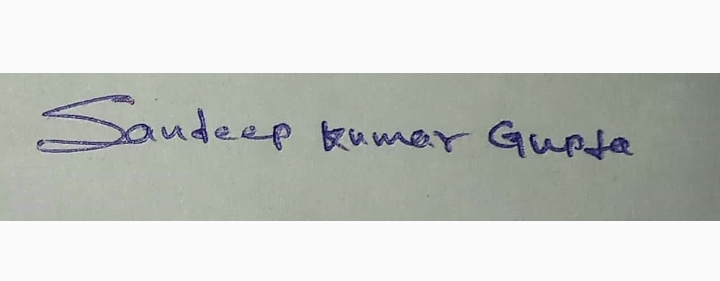 Sandeep Kumar Gupta